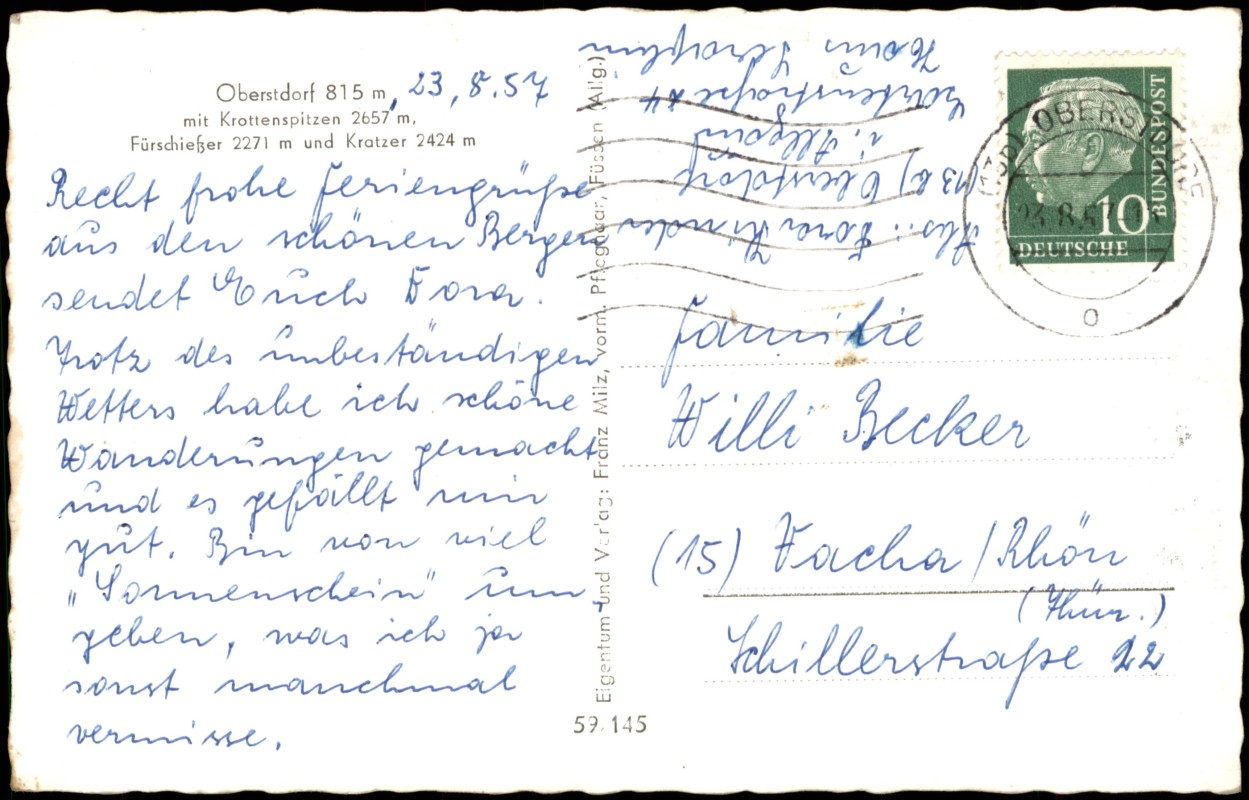 Oberstdorf 815 m, 23.8.57
mit Krottenspitzen 2657 m,
Fürschießer 2271 m und Kratzer 2424 m
Recht frohe Feriengrüße
aus den schönen Bergen
sendet Euch Dora.
Trotz des unbeständigen
Wetters habe ich schöne
Wanderungen gemacht
und es gefällt mir
gut. Bin von viel
"Sonnenschein" um-
geben, was ich ja
sonst manchmal
vermisse.
Eigentum und Verlag: Franz Milz, vorm. Pfleghaar, Füssen (Allg.)
59.145
Abs.: Dora Kinder
(13b) Oberstdorf
i. Allgäu
Gartenstraße 24
Haus Seraphin
OBERSTDORF
23.8.57
10
DEUTSCHE
BUNDESPOST
Familie
Willi Becker
(15) Vacha/Rhön
(Thür.)
Schillerstraße 22